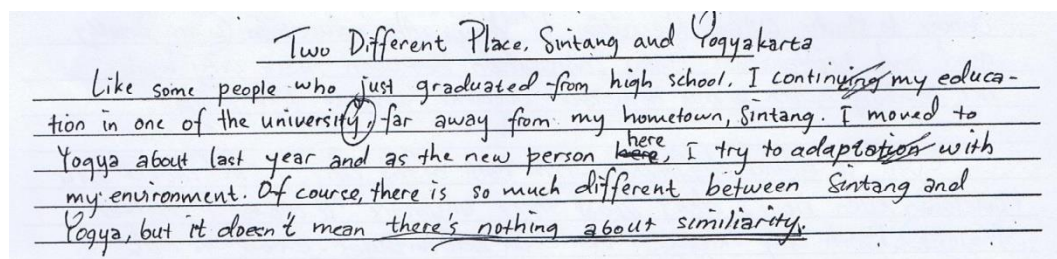 Two Different Place, Sintang and Yogyakarta
Like some people who just graduated from high school. I continuing my educa-
tion in one of the university, far away from my hometown, Sintang. I moved to
here
Yogya about last year and as the new person here, I try to adaptation with
my environment. Of course, there is so much different between Sintang and
Yogya, but it doesn't mean there's nothing about similiarity.